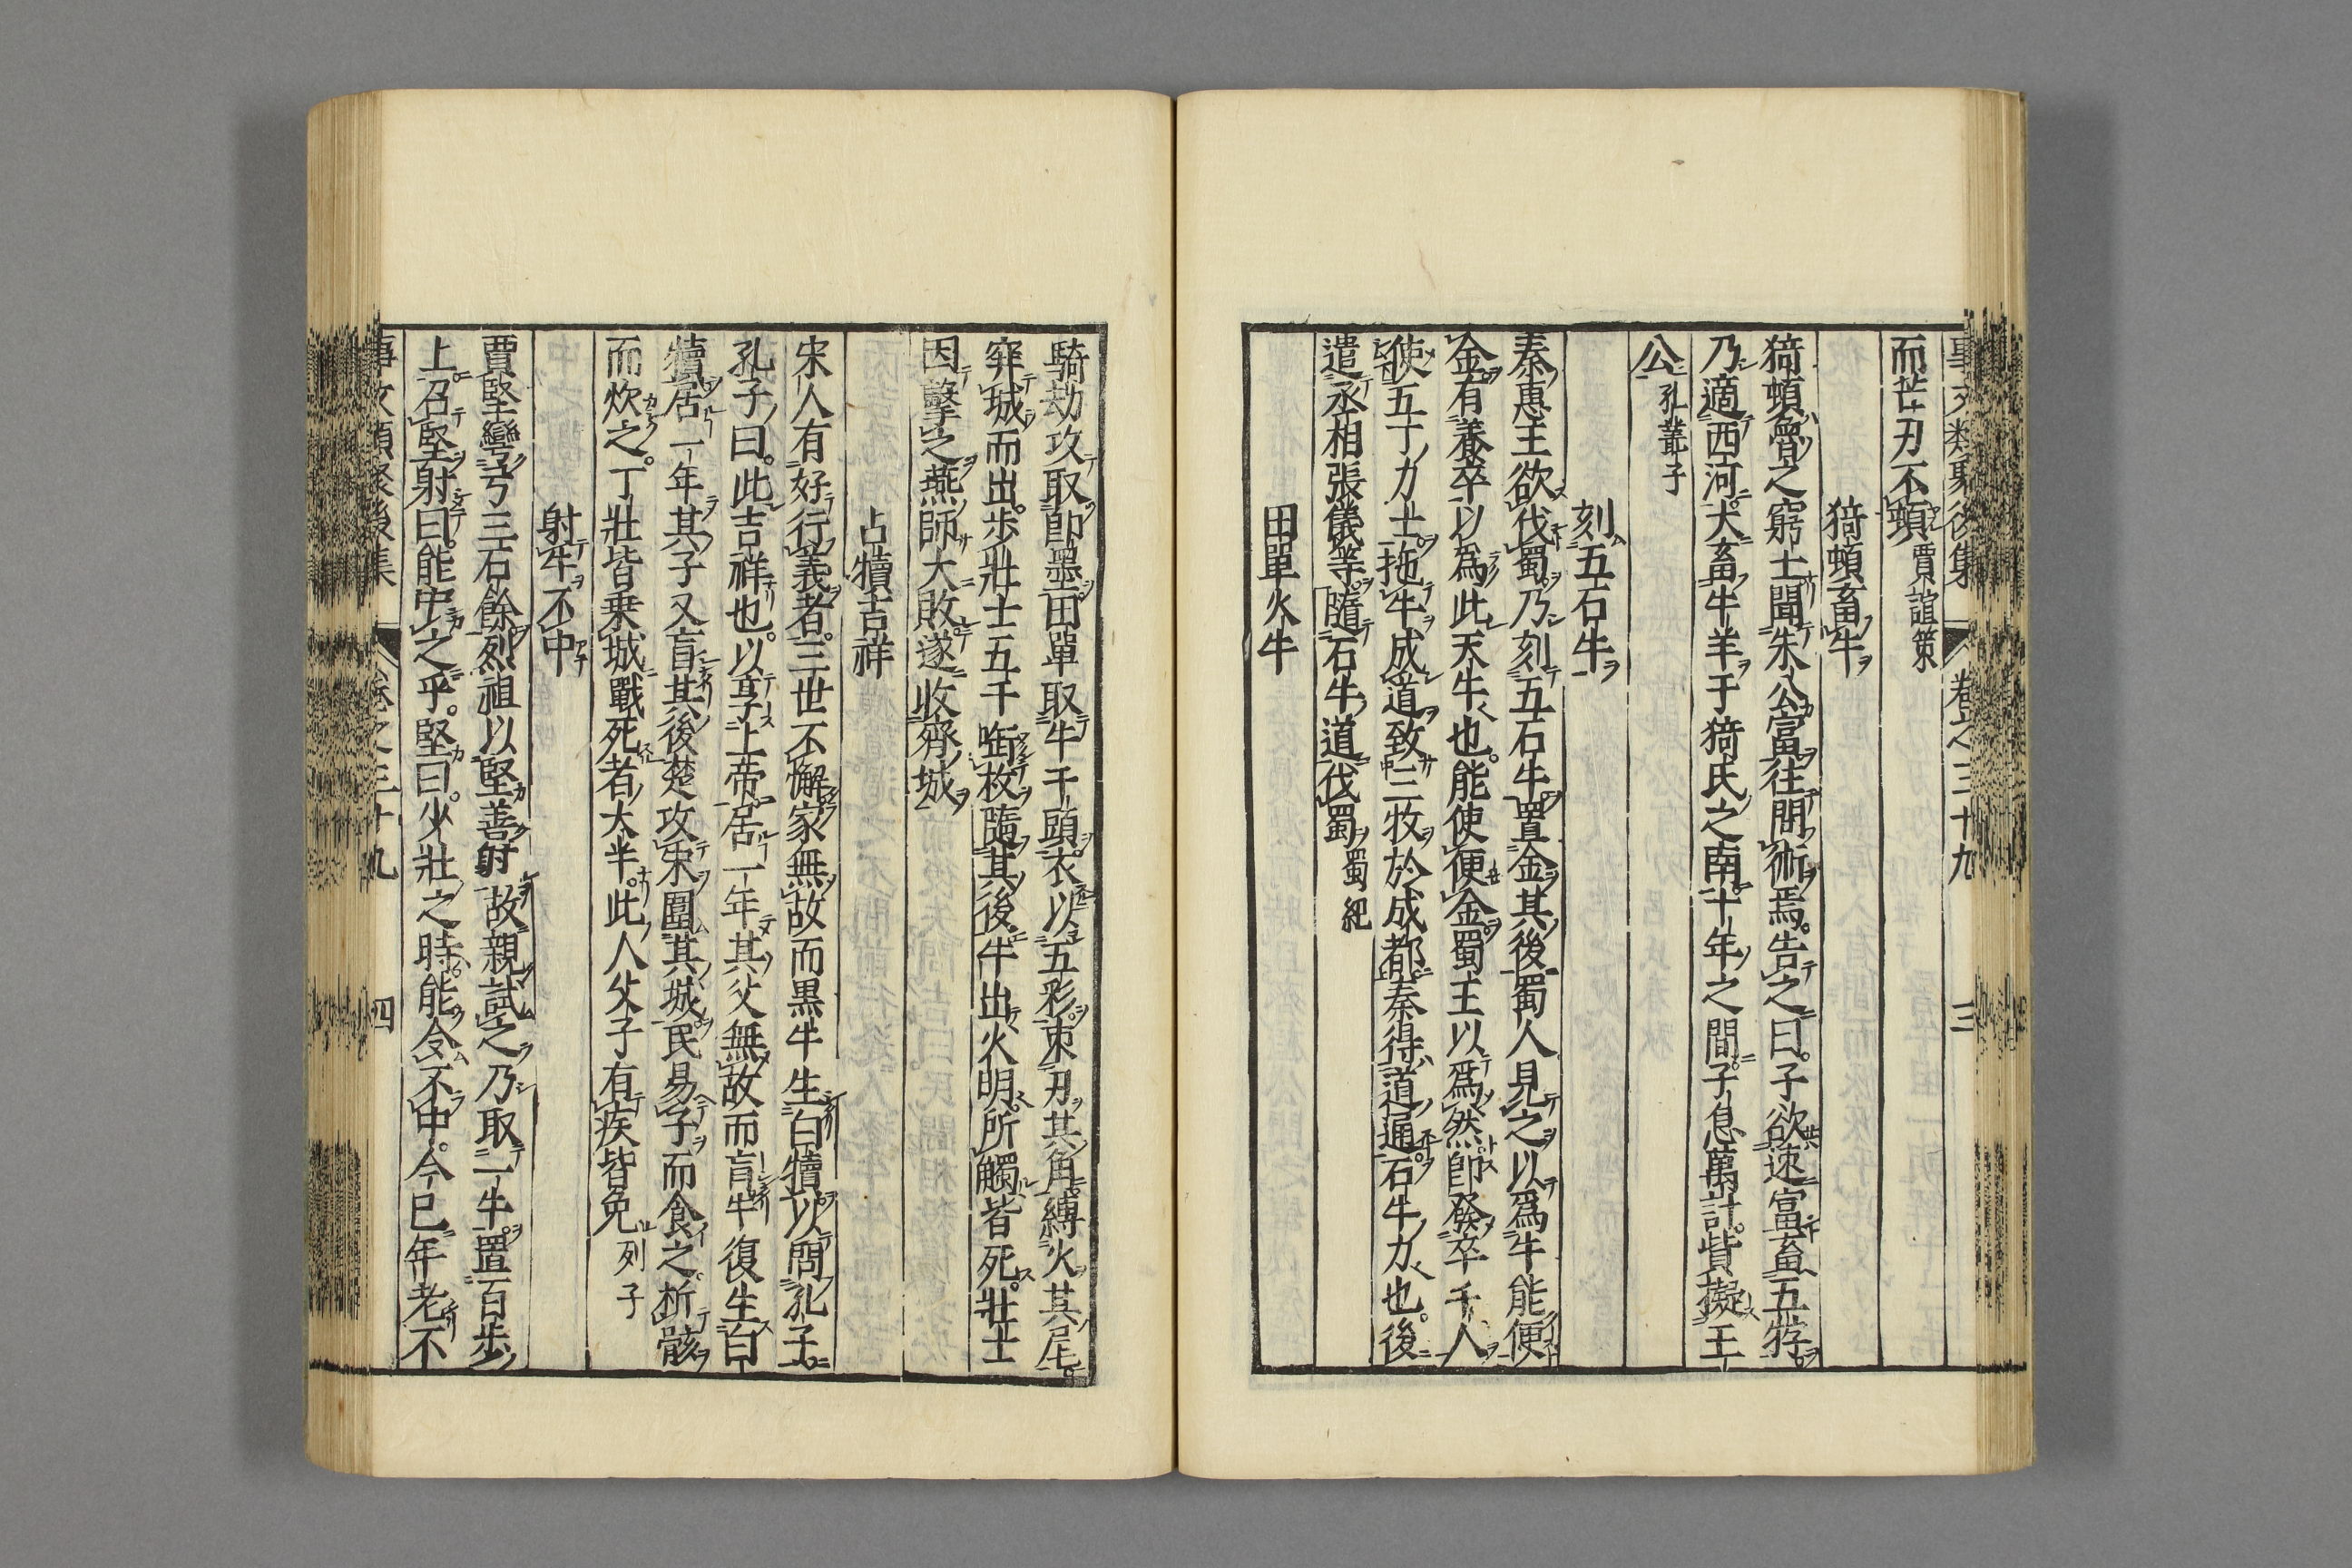 事文類聚後集 卷之三十九 三
而芒刃不頓 賈誼策
猗頓畜牛
猗頓魯之窮士聞朱公富往問術焉。告之曰。子欲速富畜五牸
乃適西河大畜牛羊于猗氏之南十年之間子息萬計。貲擬王
公 孔叢子
刻五石牛
秦惠王欲伐蜀乃刻五石牛置金其後蜀人見之以爲牛能便
金有養卒以爲此天牛也。能使便金蜀王以爲然卽發卒千人
使五丁力士拖牛成道致三牧於成都秦得道通石牛力也。後
遣丞相張儀等隨石牛道伐蜀 蜀紀
田單火牛
騎劫攻取卽墨田單取牛千頭衣以五彩束刃其角縛火其尾
穿城而出。歩壯士五千啣枚隨其後牛出火明所觸皆死。壯士
因擊之燕師大敗遂收齊城
占犢吉祥
宋人有好行義者。三世不懈家無故而黒牛生白犢以問孔子
孔子曰。此吉祥也。以享上帝居一年其父無故而盲牛復生白
犢居一年其子又盲其後楚攻宋圍其城民易子而食之析骸
而炊之。丁壯皆乗城戰死者大半。此人父子有疾皆免 列子
射牛不中
賈堅彎弓三石餘烈祖以堅善射故親試之乃取一牛置百歩
上召堅射曰。能中之乎。堅曰。少壯之時能令不中。今已年老不
事文類聚後集 卷之三十九 四